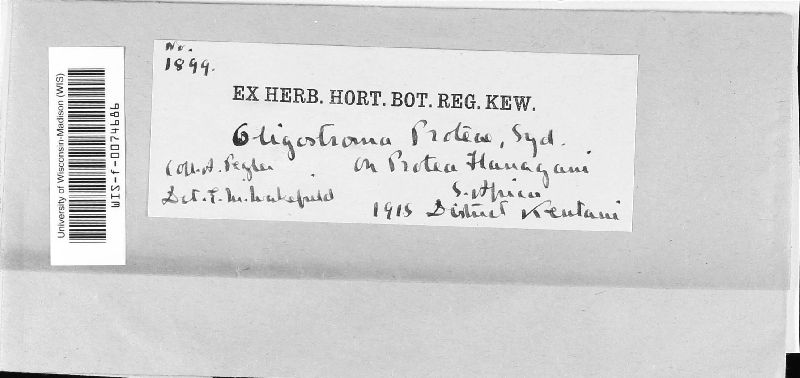 University of Wisconsin-Madison (WIS)
WIS-f-0074686
No.
1899.
EX HERB. HORT. BOT. REG. KEW.
Oligostroma Proteae, Syd.
Coll. A. Pegler on Protea Flanagani
Det. E. M. Wakefield S. Africa
1915 District Kentani